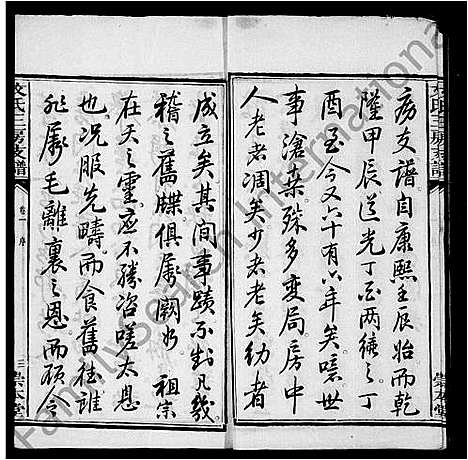 房支譜自康熙壬辰始而乾
隆甲辰道光丁酉兩續之丁
酉至今又六十有六年矣噫世
事滄桑殊多變局房中
人老者凋矣少者老矣幼者
成立矣其間事蹟不尠凡幾
稽之舊牒俱屬闕如 祖宗
在天之靈應不勝咨嗟太息
也況服先疇而食舊德誰
非屬毛離裏之恩而顧令
氏三房支譜
卷一 序
三
崇本堂
氏三房支譜
崇本堂
FamilySearch International